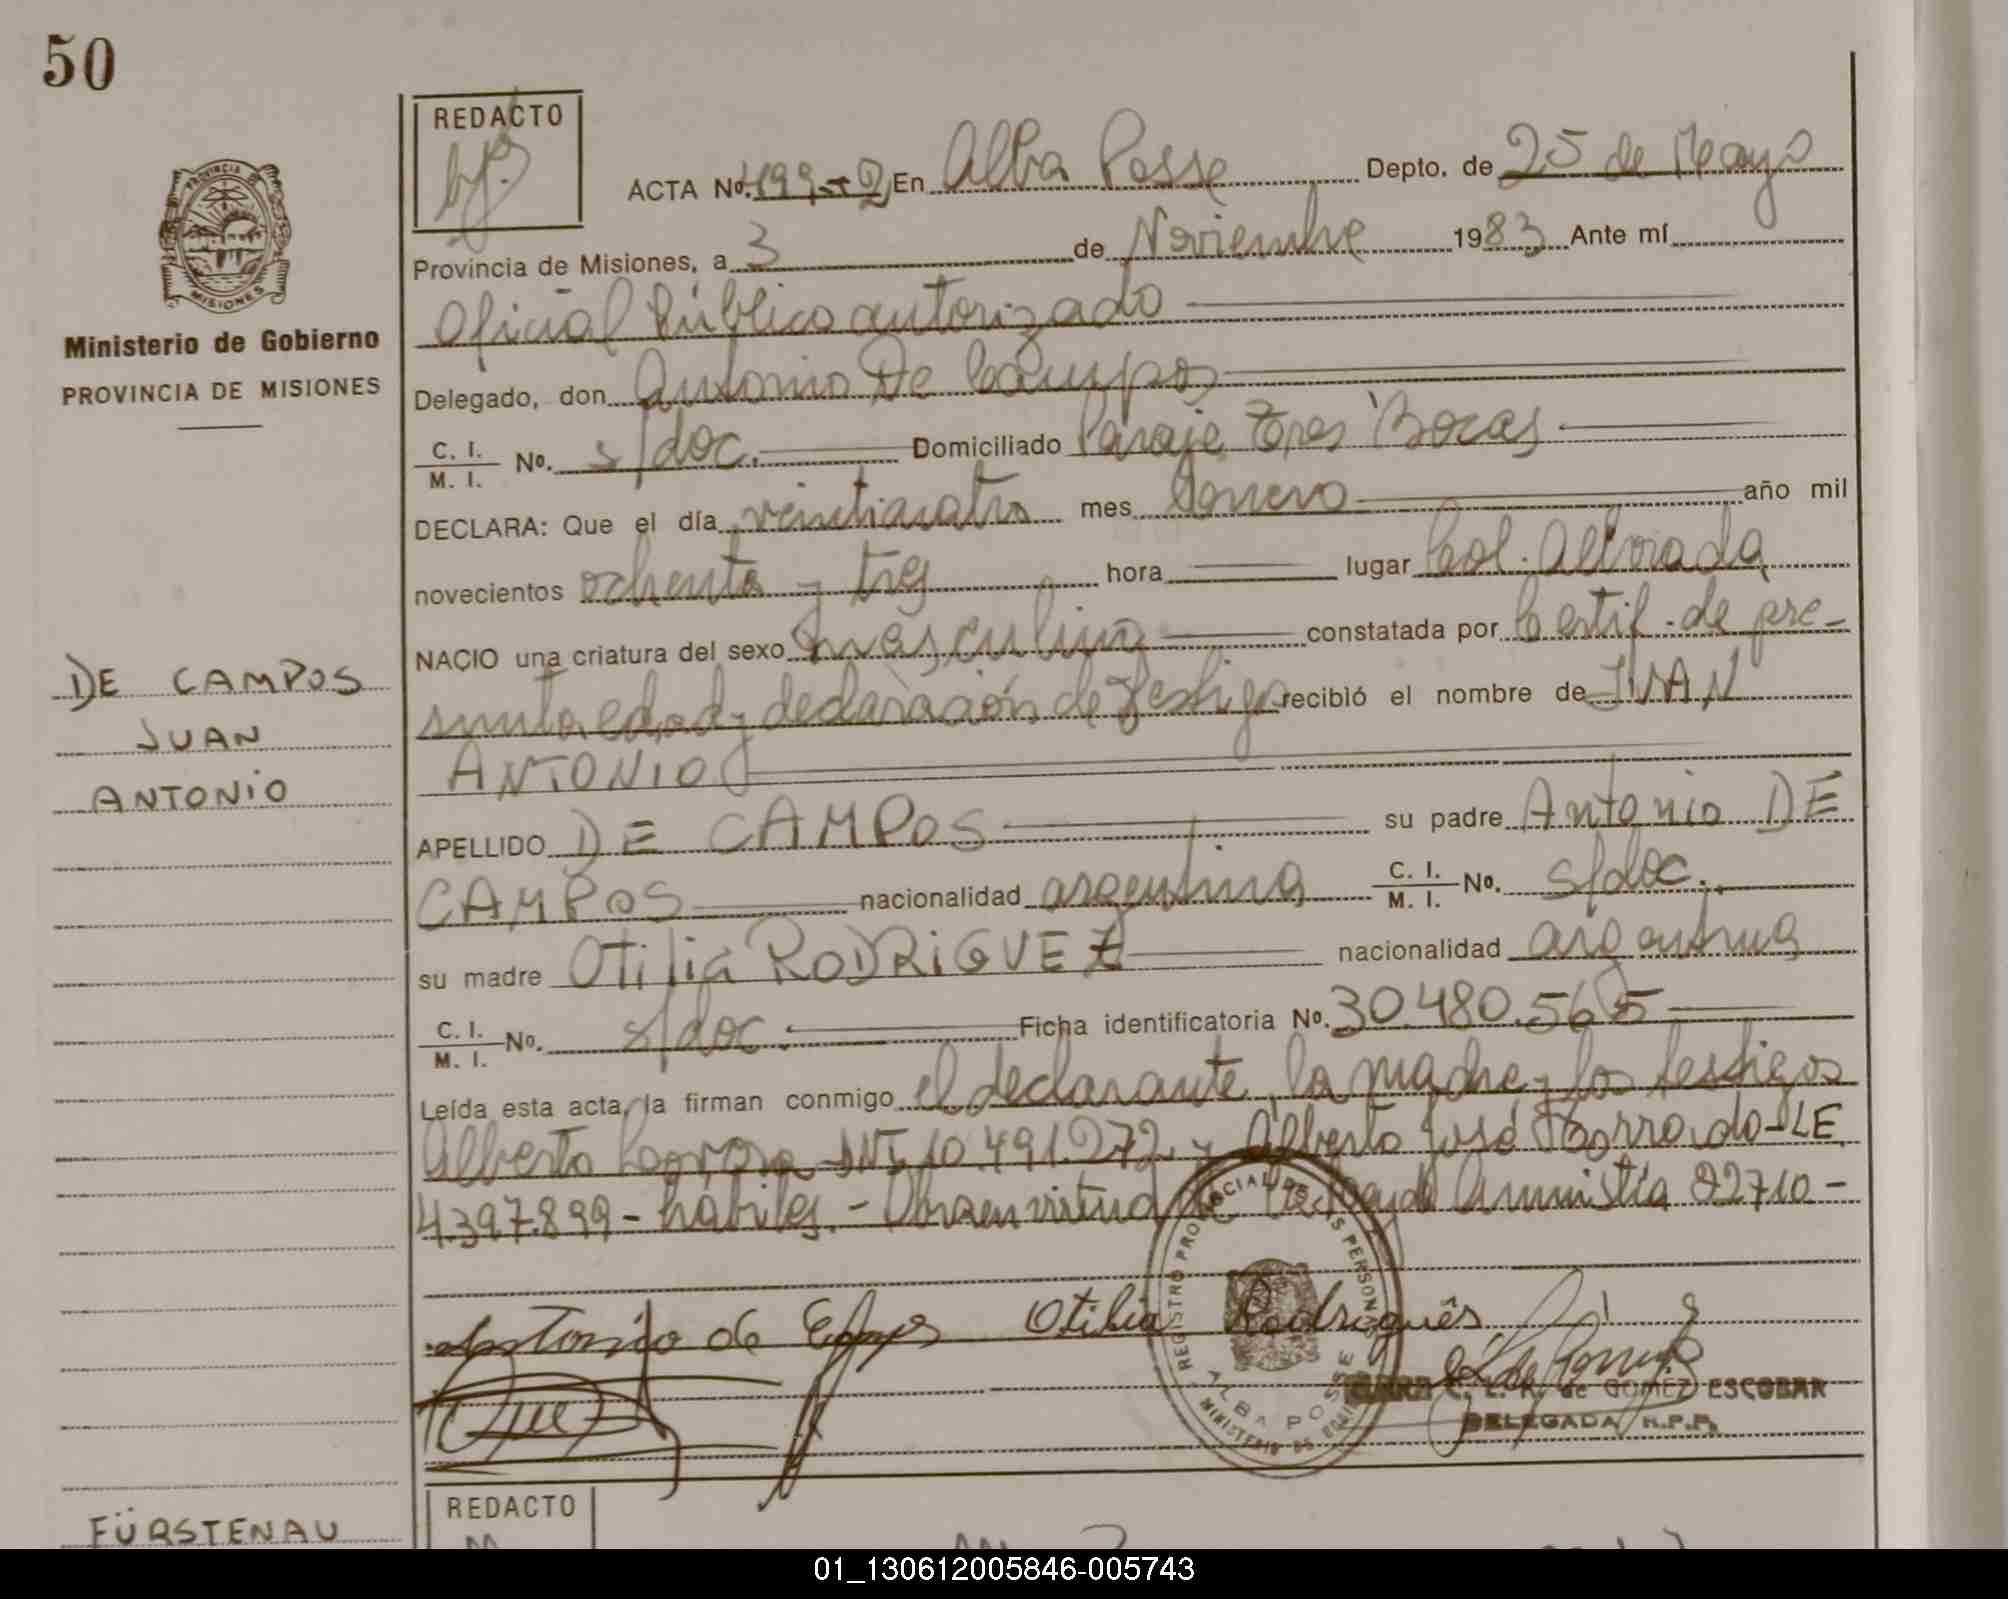 50
REDACTO
ACTA No. 199-T2 En Alba Posse Depto. de 25 de Mayo
Provincia de Misiones, a 3 de Noviembre 1983 Ante mí
Oficial Público autorizado
Delegado, don Antonio De Campos
C. I.
M. I. No. s/doc. Domiciliado Paraje Tres Bocas
DECLARA: Que el día veinticuatro mes Enero año mil
novecientos ochenta y tres hora lugar Col. Alborada
NACIO una criatura del sexo masculino constatada por Certif. de pre-
sunta edad y declaración de testigo recibió el nombre de JUAN
ANTONIO
APELLIDO DE CAMPOS su padre Antonio DE
CAMPOS nacionalidad argentina C. I.
M. I. No. s/doc.
su madre Otilia RODRIGUEZ nacionalidad argentina
C. I.
M. I. No. s/doc. Ficha identificatoria No. 30.480.565
Leída esta acta, la firman conmigo el declarante, la madre y los testigos
Alberto DNI 10.491.272 y Alberto José LE
4.397.899 - hábiles. - Obra en virtud de la Ley de Amnistía 22710 -
Antonio de Otilia Rodriguês
REGISTRO PROVINCIAL DE LAS PERSONAS
ALBA POSSE
MINISTERIO DE
C. L. R. de GOMEZ ESCOBAR
DELEGADA R.P.P.
PROVINCIA DE
MISIONES
Ministerio de Gobierno
PROVINCIA DE MISIONES
DE CAMPOS
JUAN
ANTONIO
FÜRSTENAU
REDACTO
01_130612005846-005743